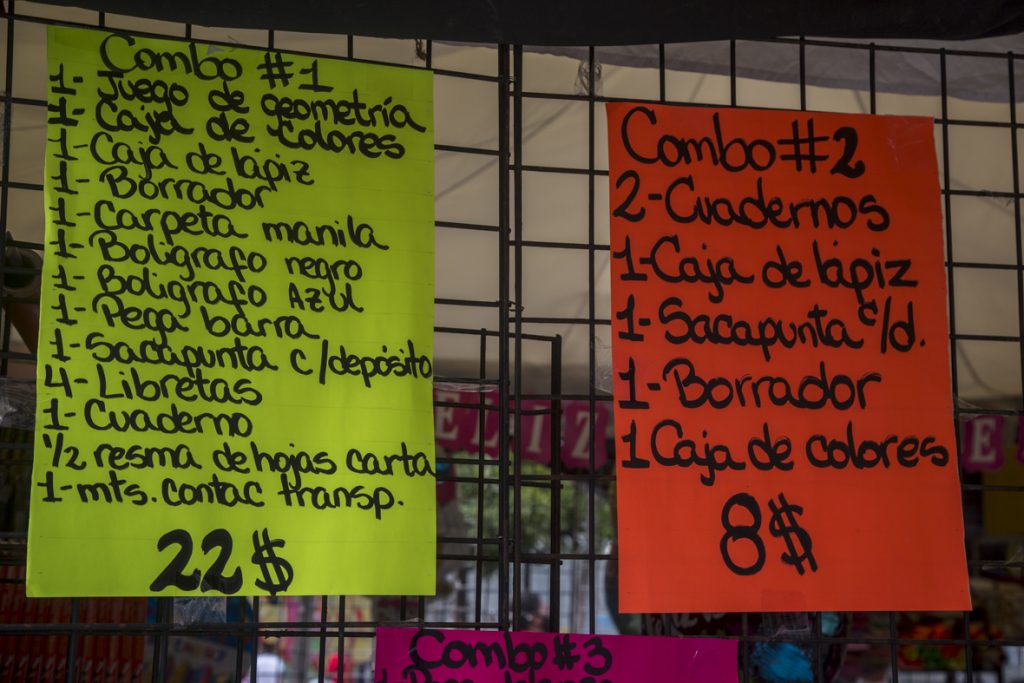 Combo #1
1- Juego de geometría
1- Caja de colores
1- Caja de lápiz
1- Borrador
1- Carpeta manila
1- Boligrafo negro
1- Boligrafo AZUL
1- Pega barra
1- Sacapunta c/depósito
4- Libretas
1- Cuaderno
1/2 resma de hojas carta
1- mts. contac transp.
22$
Combo #2
2- Cuadernos
1- Caja de lápiz
1- Sacapunta c/d.
1- Borrador
1 Caja de colores
8$
ELIZ
E
Combo #3